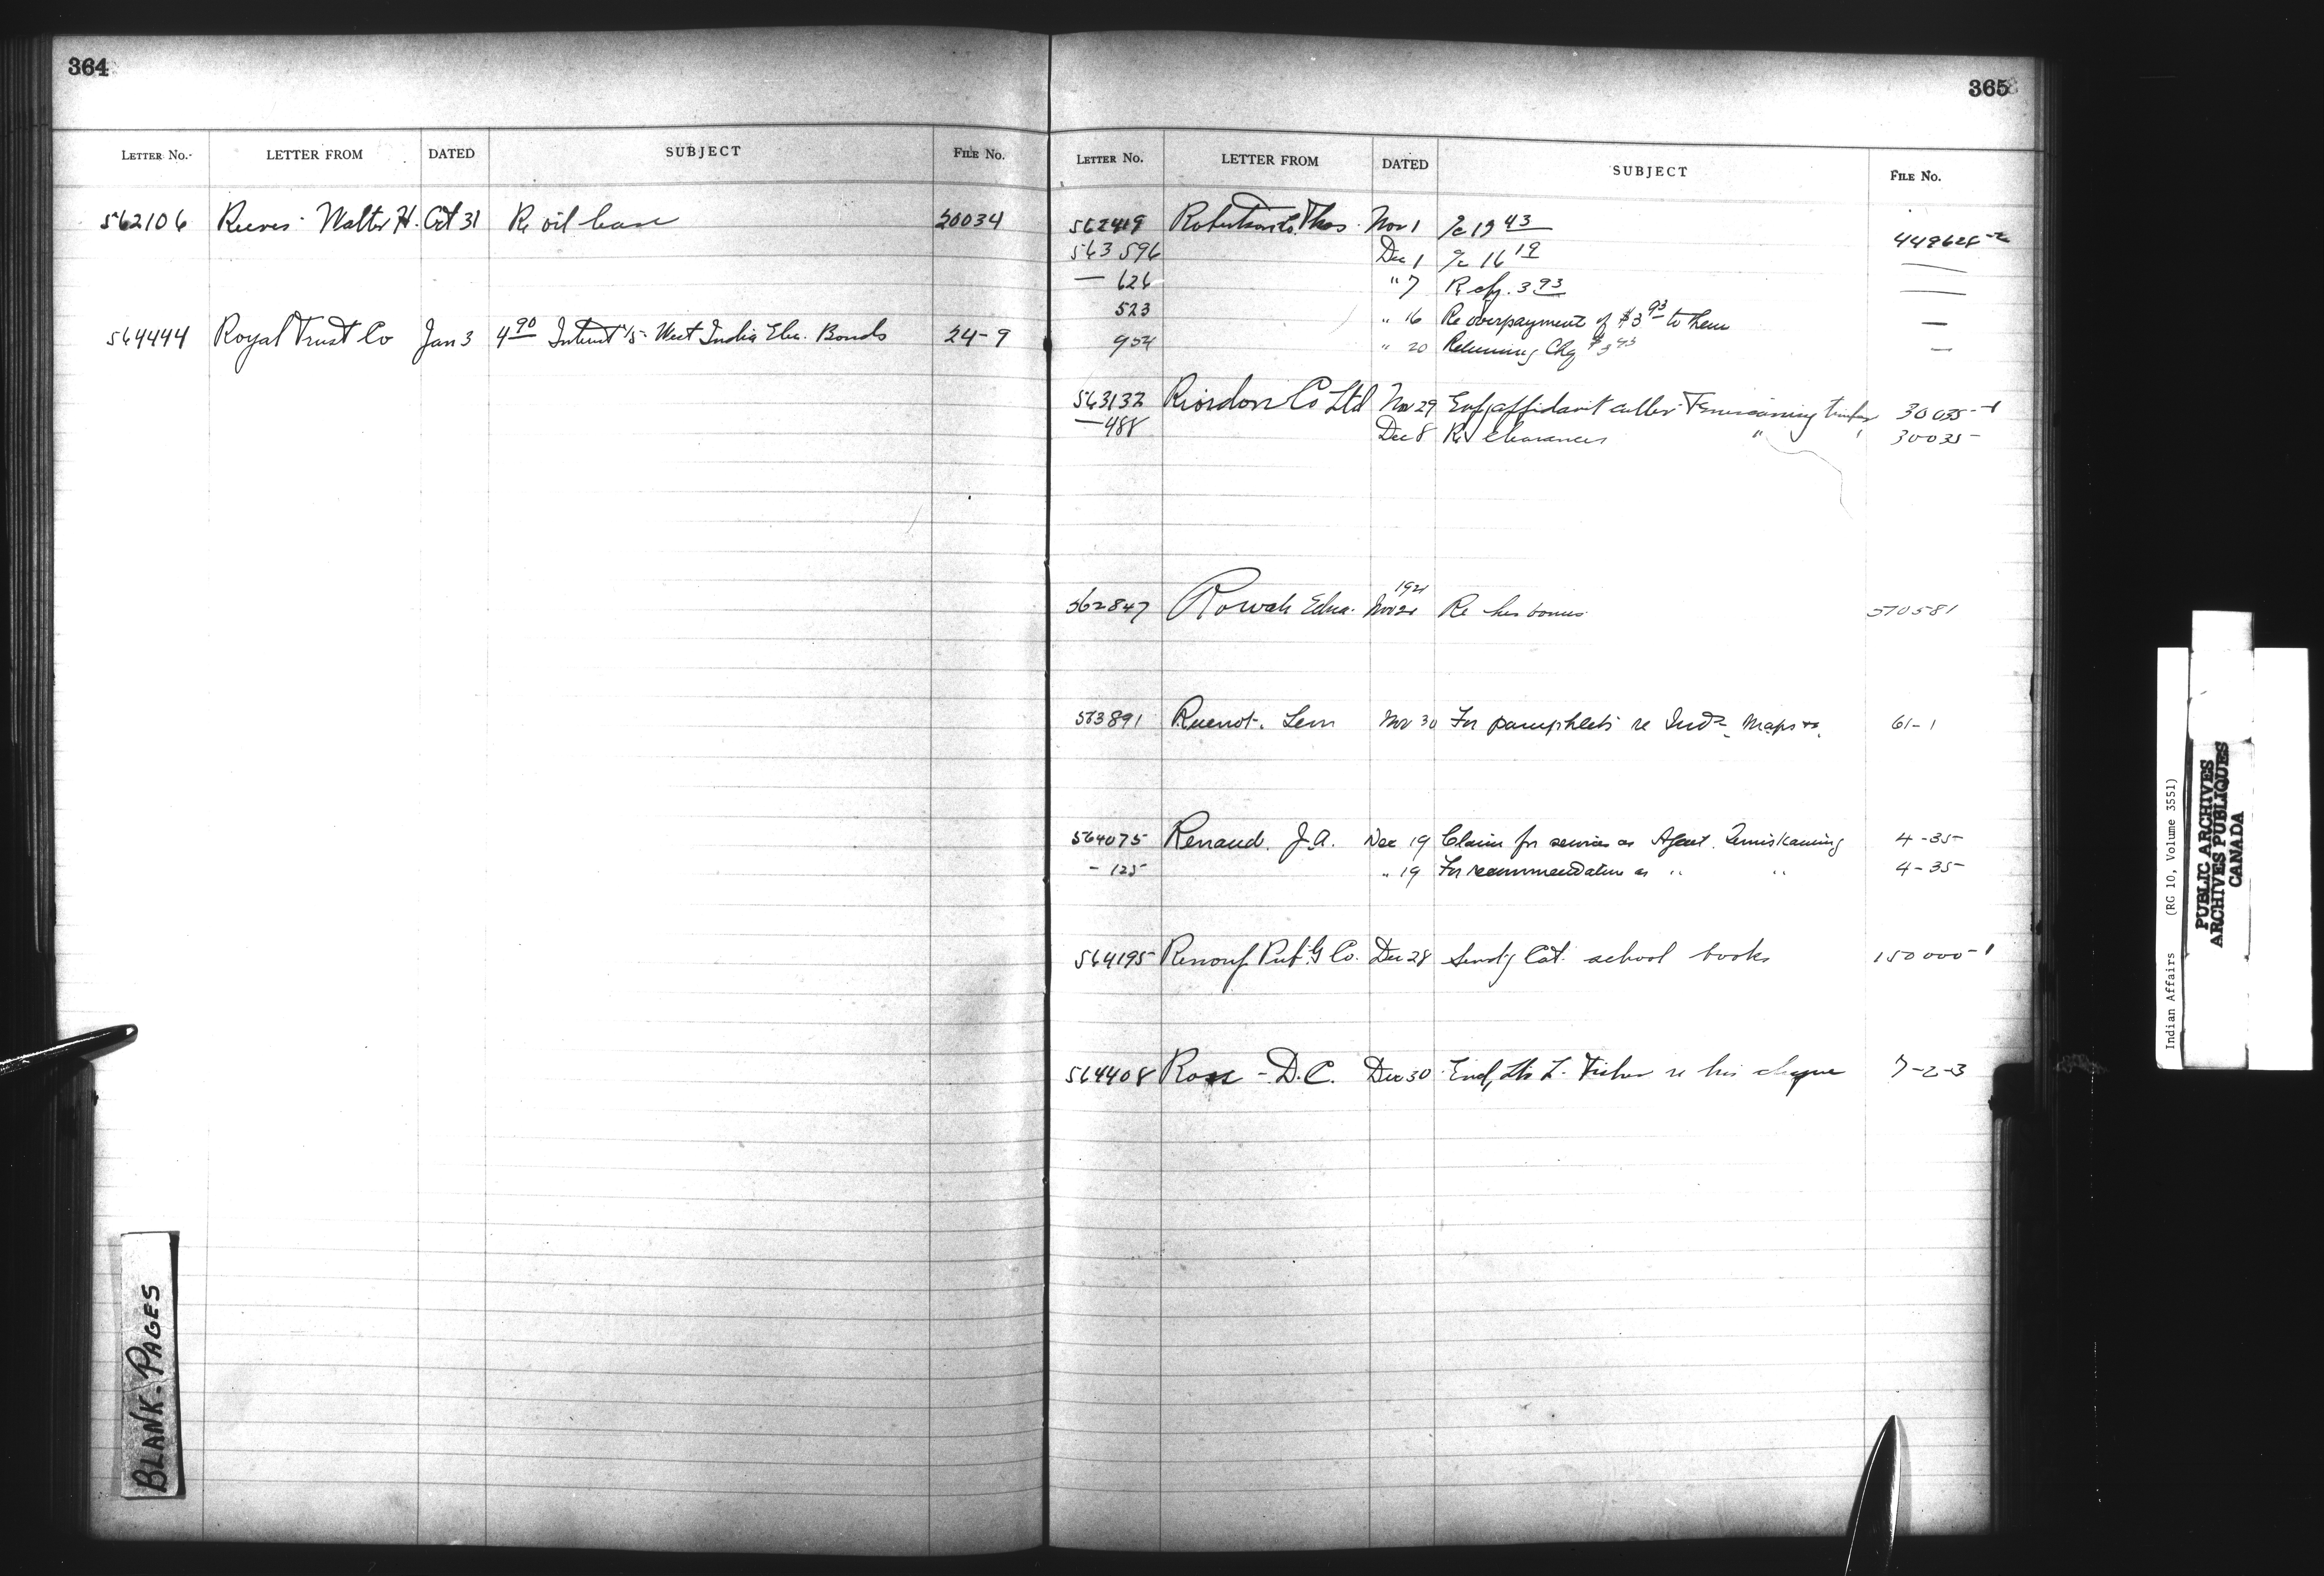 364
LETTER NO. LETTER FROM DATED SUBJECT FILE No.
562106 Reeves Walter H. Oct 31 Re oil lease 20034
564444 Royal Trust Co Jan 3 4 90 Interest West India Elec. Bonds 24-9
365
LETTER No. LETTER FROM DATED SUBJECT FILE No.
562419 Robertson Thos Nov 1 a/c 19 43
563596 Dec 1 a/c 16 19
— 626 " 7 Re 3 93
523 " 16 Re overpayment of $3 93 to them —
954 " 20 Returning Chq $3 93 —
563132 Riordon Co Ltd Nov 29 affidavit 30035-1
— 488 Dec 8 Re clearances " " 30035-
562847 Rowan Edna. 1921 Nov 21 Re her bonus 570581
563891 Lem Nov 30 For pamphlets re Inds. Maps &c. 61-1
564075 Renaud. J.A. Dec 19 Claim for services as Agent. Temiskaming 4-35-
- 125 " 19 For recommendation as " " 4-35-
564195 Renouf Pub'g Co. Dec 28 Send'g Cat. school books 150000-1
564408 Ross - D.C. Dec 30 re his cheque 7-2-3
BLANK-PAGES
Indian Affairs (RG 10, Volume 3551)
PUBLIC ARCHIVES
ARCHIVES PUBLIQUES
CANADA